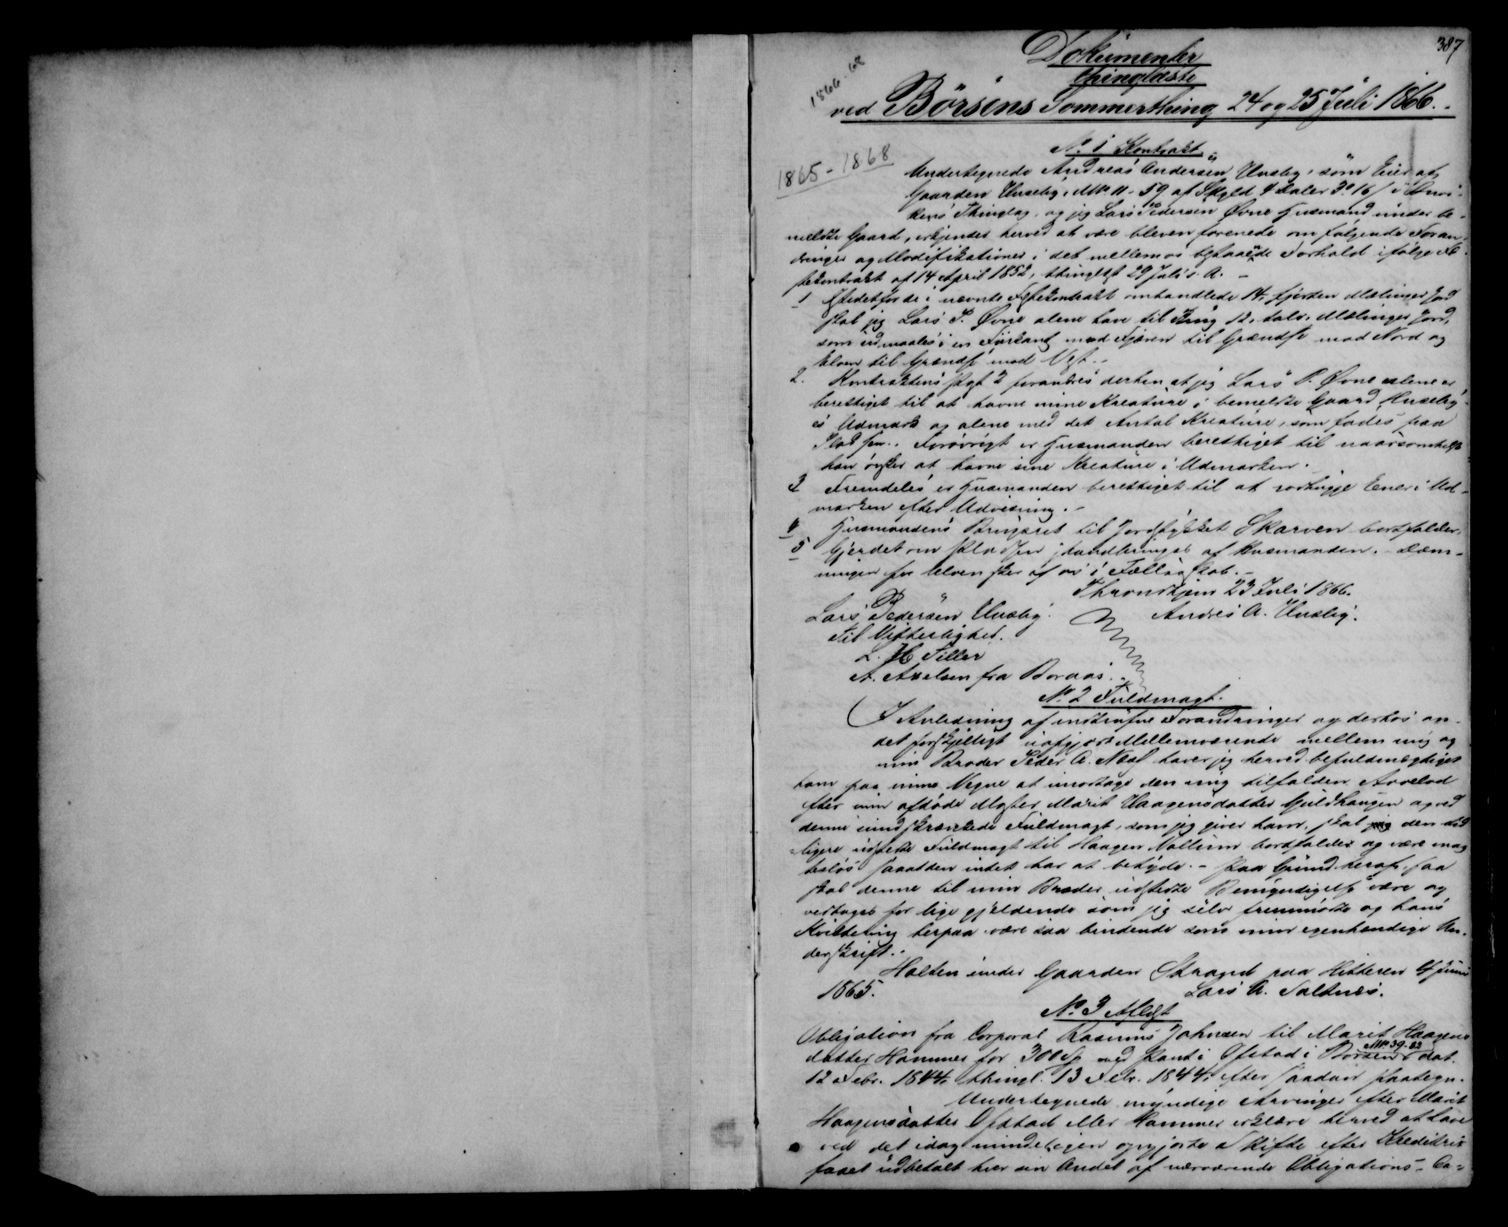 387
Dokumenter
thinglæste
1866-68
ved Börsens Sommerthing 24 og 25 Juli 1866.
1865-1868
No. 1 Kontrakt.
Undertegnede Andreas Andersen Huseby, som Eier af
Gaarden Huseby, af Skyld 4 Daler
Thinglag, og jeg Lars Pedersen Øvne Huusmand under be-
meldte Gaard, erkjender herved at være bleven forenede om følgende Foran-
dringer og Modifikationer i det mellem os Forhold ifølge Fæ-
stekontrakt af 14 April 1852, thinglyst 29 Juli s. A. -
1 Istedetfor de i nævnte Festekontrakt omhandlede 14, fjorten Mælinger Jord
skal jeg Lars P. Øvne alene have til Brug 12, tolv, Mælinger Jord,
som udmaales i en Fiirkant med Fjæren til Grændse mod Nord og
Elven til Grændse mod Vest. -
2. Kontraktens Post 2 forandres derhen at jeg Lars P. Øvne alene er
berettiget til at havne mine Kreature i bemeldte Gaard Huseby-
es Udmark og alene med det Antal Kreature, som fødes paa
Pladsen. Forøvrigt er Huusmanden berettiget til naarsomhelst
han ønsker at havne sine Kreature i Udmarken.
3 Fremdeles er Huusmanden berettiget til at Ener i Ud-
marken efter Udviisning. -
4 Huusmandens til Jordstykket Skarven bortfalder.
5 Gjerdet om Pladsen af Huusmanden. - Dæm-
ningen for Elven sker af os i Fællesskab. -
Throndhjem 23 Juli 1866.
Lars Pedersen Huseby. Andreas A. Huseby.
Til Vitterlighed.
L. H. Tiller
A. Axelsen fra Boraas.
No. 2 Fuldmagt.
I Anledning af indtrufne Forandringer og derhos an-
det forskjelligt uopgjort Mellemværende mellem mig og
min Broder Peder A. haver jeg herved befuldmægtiget
ham paa mine Vegne at modtage den mig tilfalden Arvelod
efter min afdøde Moster Marit Haagensdatter Guldhaugen og ved
denne indskrænkede Fuldmagt, som jeg giver ham, skal jeg den tid-
ligere udstedte Fuldmagt til Haagen bortfalder og være mag-
tesløs saasom intet har at betyde. - Paa Grund heraf, saa
skal denne til min Broder udstedte Bemyndigelse være og
vedtages for lige gjeldende som jeg selv fremmødte og hans
Kvittering herpaa være saa bindende som min egenhændige Un-
derskrift. -
Holten under Gaarden Strand paa Hitteren 4 Juni
1865. Lars A. Saltnes.
No. 3 Aflyst
Obligation fra Corporal Rasmus Johnsen til Marit Haagens-
datter Hammer for 300 Spd med Pant i Ofstad i Børsen dat.
12 Febr. 1844, thingl. 13 Febr. 1844, efter saadan Paategn.
Undertegnede myndige Arvinger efter Marit
Haagensdatter Ofstad eller Hammer erklære herved at have
ved det idag opgjorte Skifte efter Kreditrix
faaet udbetalt hver sin Andel af nærværende Obligations- Ca-